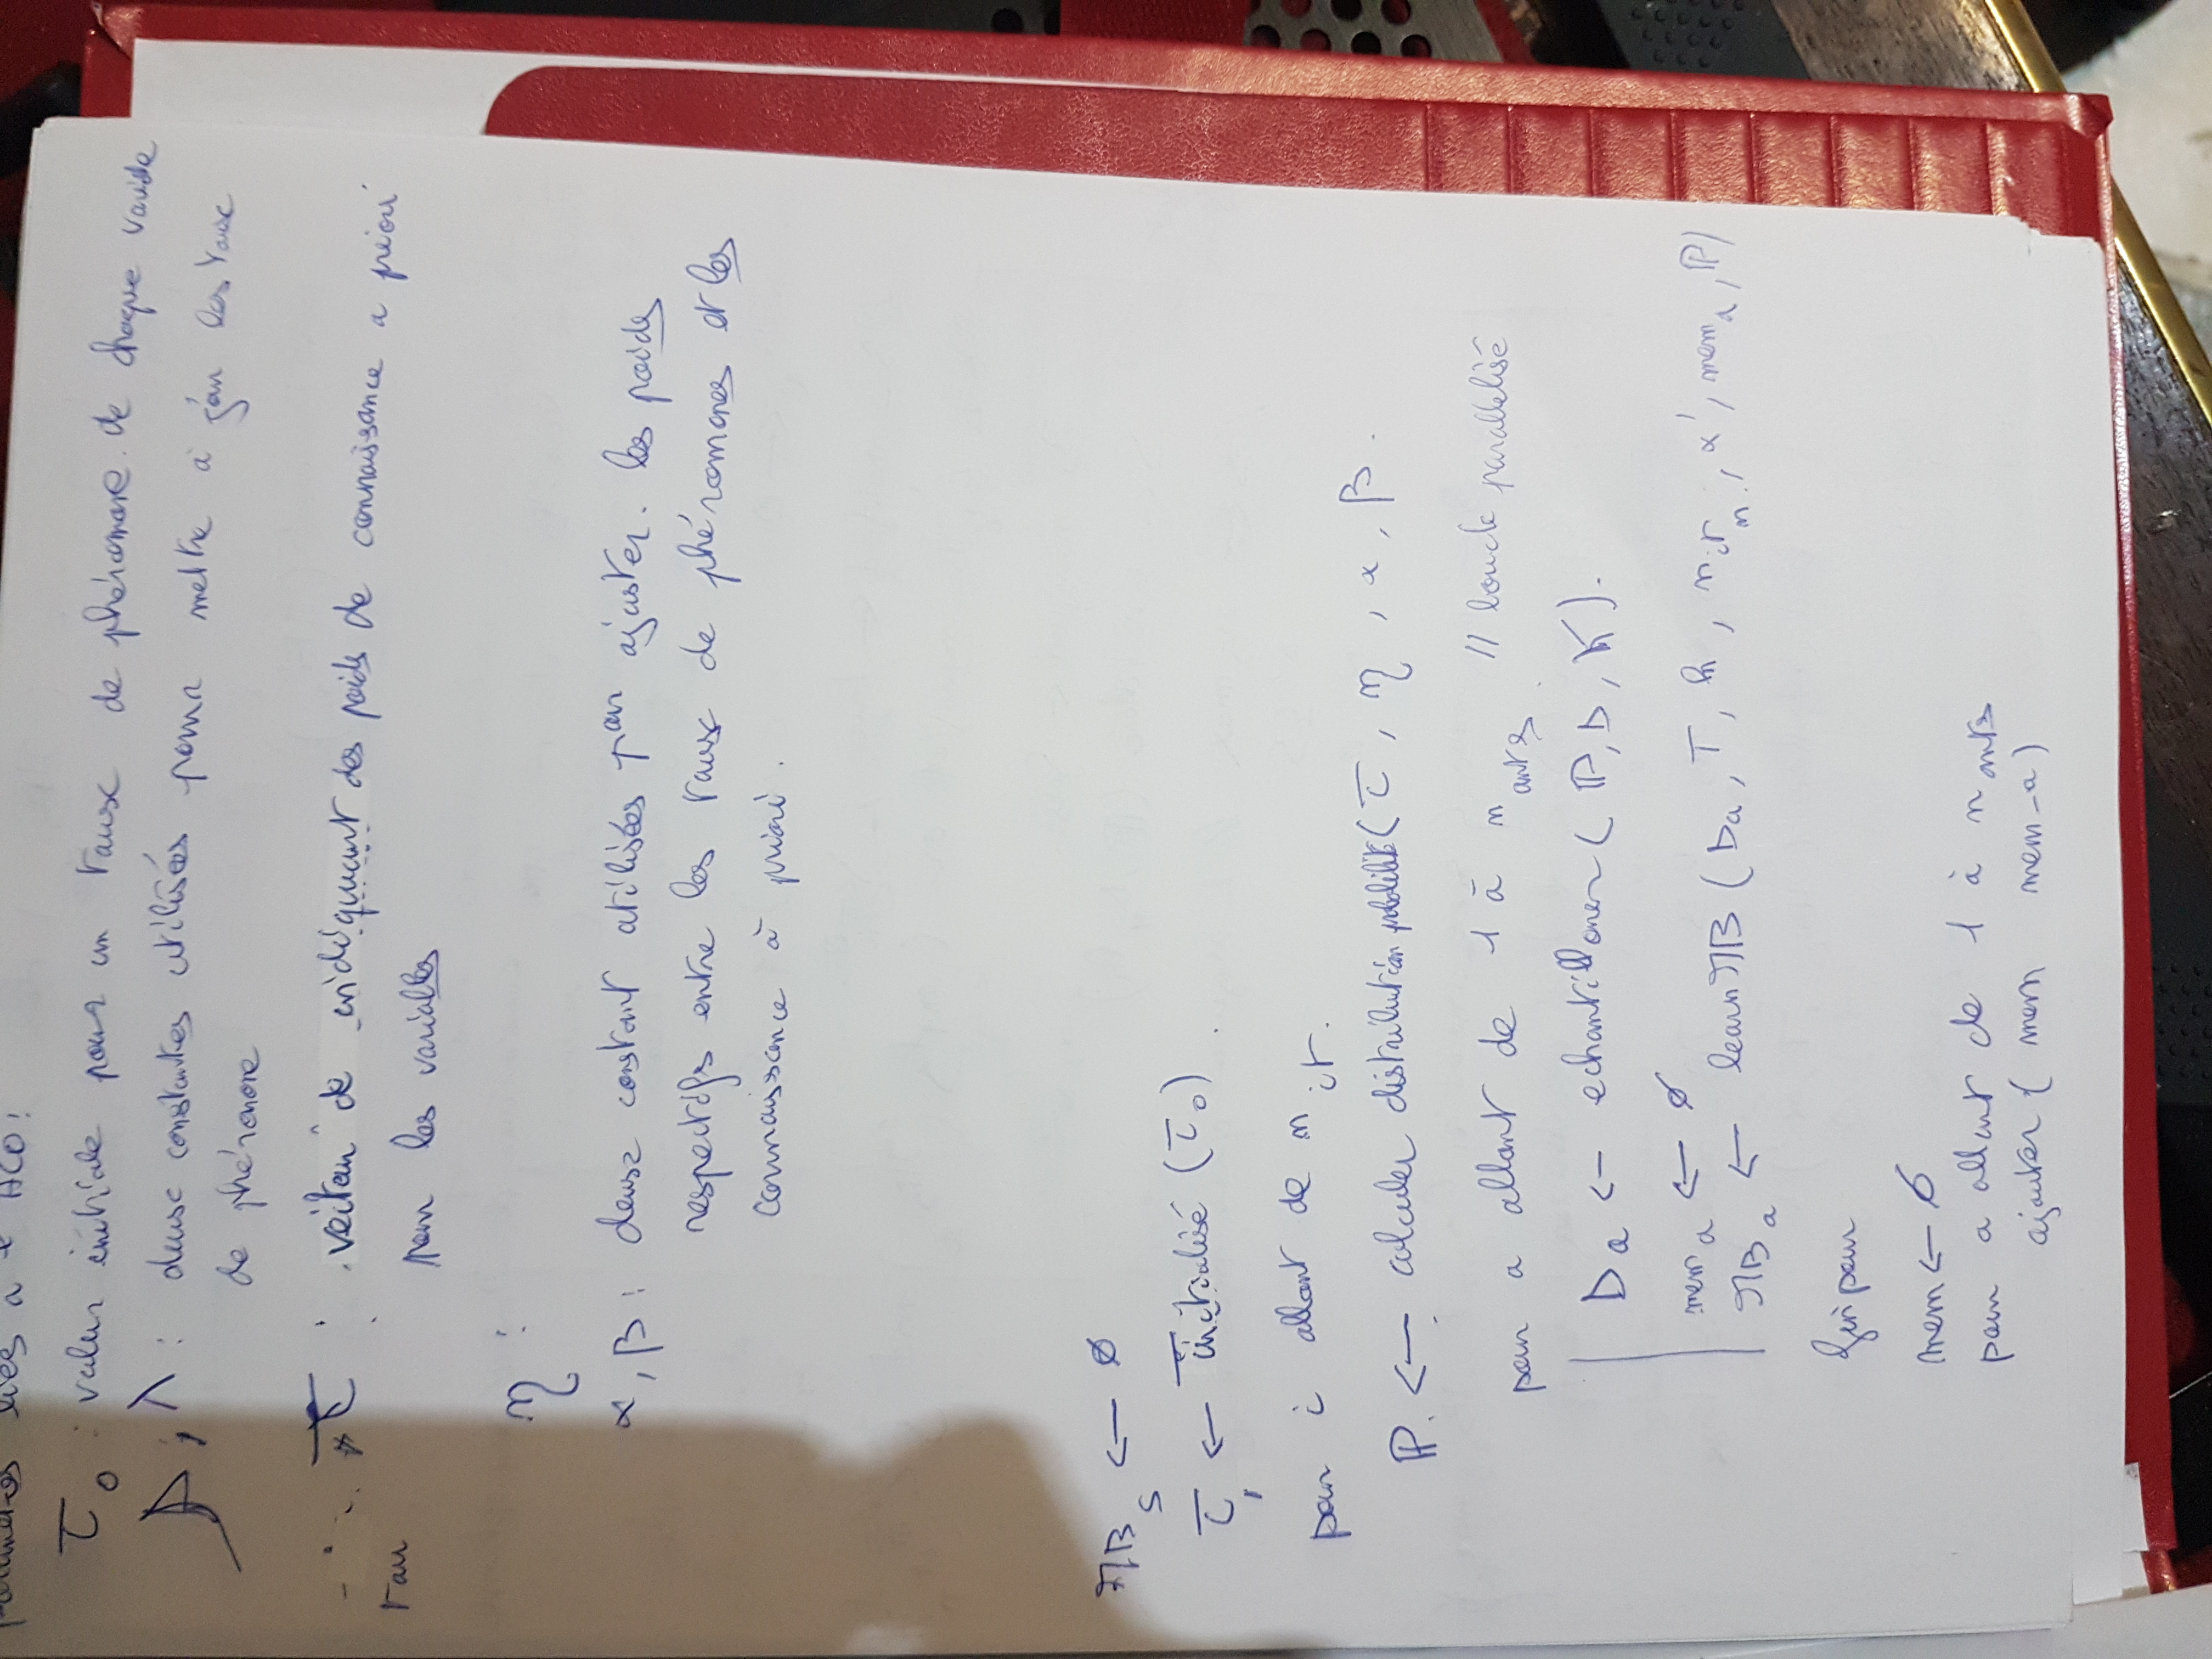 paramètres liés à l'ACO :
τ₀ : valeur initiale pour un taux de phéromone de chaque variable
ρ, λ : deux constantes utilisées pour mettre à jour les taux
de phéromone
τ : vecteur de indiquant des poids de connaissance a priori
tau
pour les variables
η :
α, β : deux constant utilisées pour ajuster. les poids
respectifs entre les taux de phéromones et les
connaissance à priori.
MB_s ← ∅
τ, ← initialisé (τ₀).
pour i allant de n_it.
ℙ. ← calculer distribution probabilité (τ, η, α, β.
pour a allant de 1 à n_ants // boucle parallélisé
D_a ← echantilloner (ℙ, D, K).
mem_a ← ∅
MB_a ← learnMB (D_a, T, h, n_it_n, α', mem_a, ℙ)
fin pour
mem ← ∅
pour a allant de 1 à n_ants
ajouter (mem mem-a)